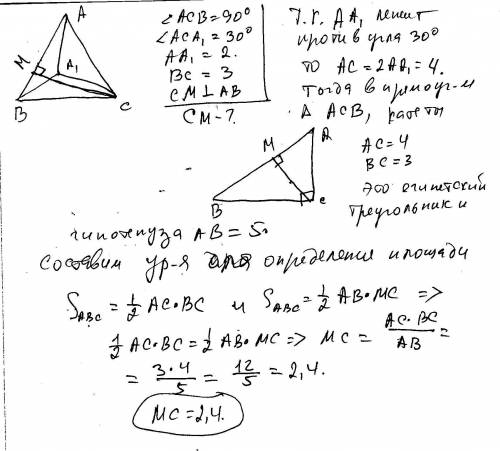 A
M
A₁
B
C
∠ACB=90°
∠ACA₁=30°
AA₁=2.
BC=3
CM⊥AB
CM-?
Т.к. АА₁ лежит
против угла 30°
то АС=2АА₁=4.
Тогда в прямоуг-м
Δ АСВ, катеты
AC=4
BC=3
Это египетский
треугольник и
A
M
B
c
гипотенуза AB=5.
Составим ур-я для определения площади
S_ABC=½AC·BC и S_ABC=½AB·MC =>
½AC·BC=½AB·MC => MC=AC·BC/AB=
=3·4/5=12/5=2,4.
MC=2,4.